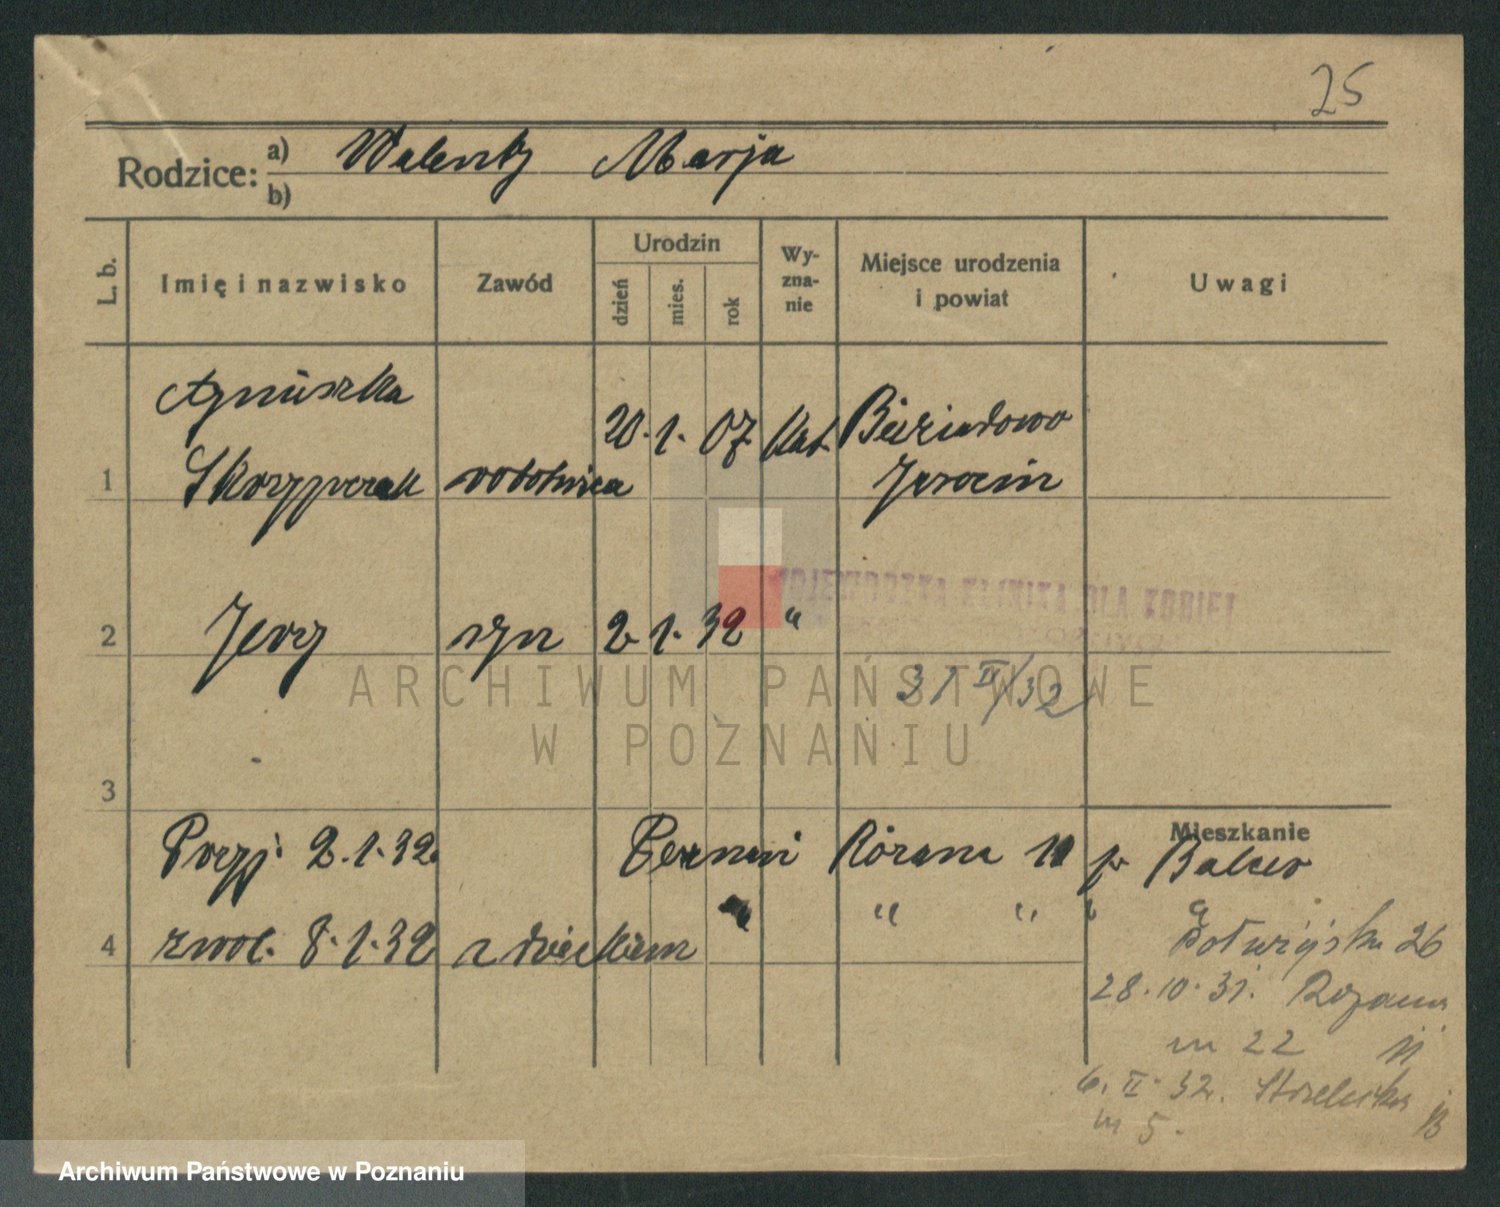 25
Rodzice: a) Walenty Marja
b)
L. b. Imię i nazwisko Zawód Urodzin dzień mies. rok Wy-zna-nie Miejsce urodzenia i powiat Uwagi
Agnieszka 20. 1. 07. kat. Bieździadowo
1 Skorzypczak robotnica Jarocin
WOJEWÓDZKA KLINIKA DLA KOBIET
2 Jerzy syn 2. 1. 32 "
31 II/32
ARCHIWUM PAŃSTWOWE
W POZNANIU
3
Mieszkanie
Przyj. 2.1.32. Poznań Różana 11 p. Balcer
" " "
4 zwol. 8.1.32. z dzieckiem
26
28.10.31. Rozana
m 22 11
6. II. 32. Strzelecka
m 5.
Archiwum Państwowe w Poznaniu